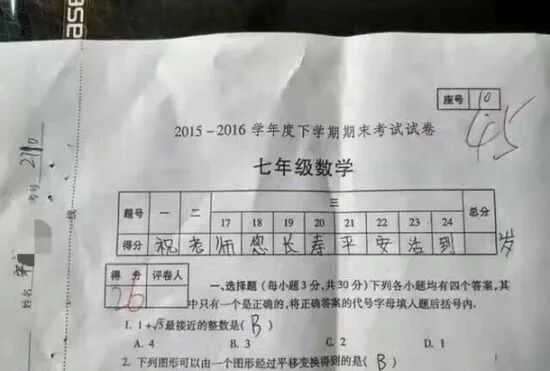 座号 10
45
2015-2016 学年度下学期期末考试试卷
七年级数学
考号 2110
姓名
线
题号 一 二 三 总分
17 18 19 20 21 22 23 24
得分 祝 老 师 您 长 寿 平 安 活 到 岁
得 分 评卷人
26
一、选择题(每小题3分,共30分)下列各小题均有四个答案,其
中只有一个是正确的,将正确答案的代号字母填入题后括号内.
1. 1+√5最接近的整数是( B )
A. 4 B. 3 C. 2 D. 1
2. 下列图形可以由一个图形经过平移变换得到的是( B )